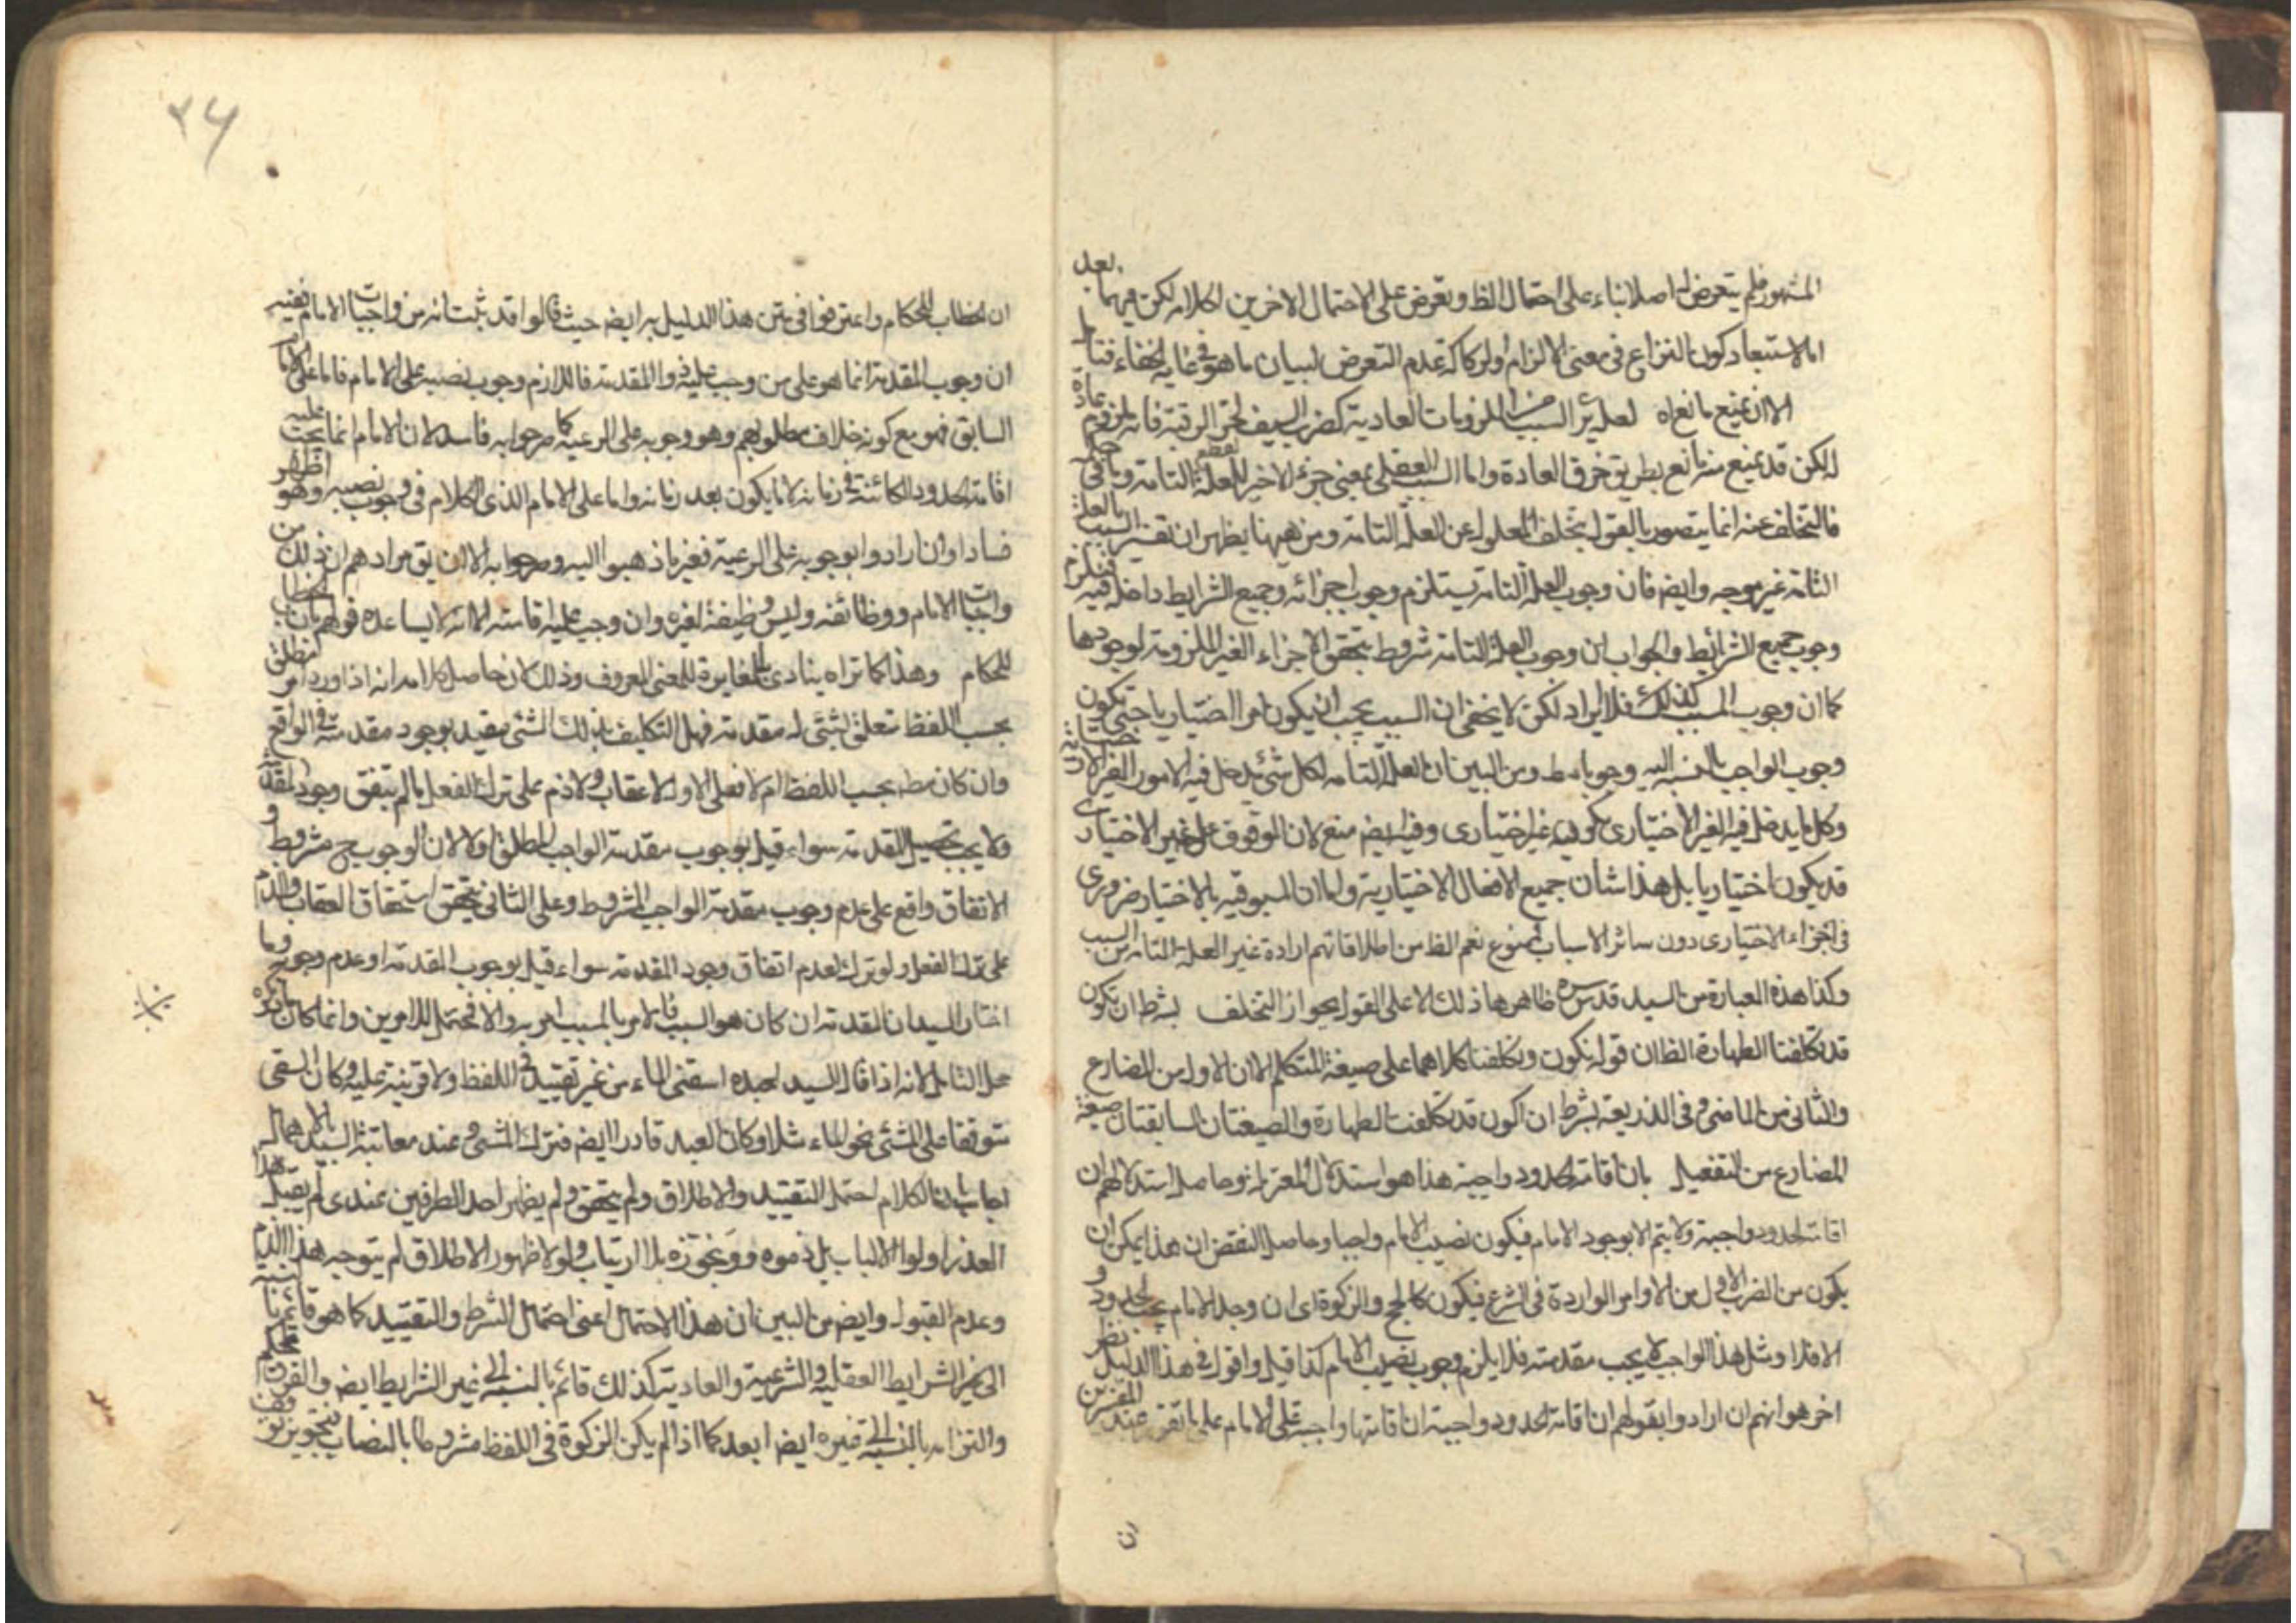 المشهور فلم يتعرض له اصلا بناء على احتمال الظ وتعرض على الاحتمال الاخرين لكلامه لكن فيهما بعد
اما لاستبعاد كون النزاع في معنى الالزام او لركاكة عدم التعرض لبيان ما هو في غاية الخفاء فتامل
الا ان يمنع مانع اه لعله يريد السبب من الملزومات العادية كضرب السيف لحز الرقبة فانه ملزوم عادة
لكن قد يمنع منه مانع بطريق خرق العادة واما السبب العقلي بمعنى جزء الاخير للعلة التامة وباقي
فالتخلف عنه انما يتصور بالقول بتخلف المعلول عن العلة التامة ومن ههنا يظهر ان تفسير السبب بالعلة
التامة غير موجه وايض فان وجوب العلة التامة يستلزم وجوب اجزائه وجميع الشرايط داخلة فيه فيلزم
وجوب جميع الشرائط والجواب ان وجوب العلة التامة مشروط بتحقق الاجزاء الغير الملزومة لوجودها
كما ان وجوب المسبب كذلك فلا ايراد لكن لا يخفى ان السبب يجب ان يكون امرا اختياريا حتى يكون
وجوب الواجب بالنسبة اليه وجوبا مط ومن البين ان العلة التامة لكل شئ يدخل فيه الامور الغير الاختيارية
وكل ما يدخل فيه الغير الاختياري يكون غير اختياري وفيه ايض منع لان الموقوف على غير الاختياري
قد يكون اختياريا بل هذا شان جميع الافعال الاختيارية ولما ان المسبوقية بالاختيار ضروري
في اجزاء الاختياري دون سائر الاسباب ممنوع نعم الظ من اطلاقاتهم ارادة غير العلة التامة من السبب
وكذا هذه العبارة من السيد قدس سره ظاهرها ذلك الا على القول بجواز التخلف بشرط ان تكون
قد تكلفنا الطهارة الظ ان قوله نكون وتكلفنا كلاهما على صيغة المتكلم الا ان الاول من المضارع
والثاني من الماضي وفي الذريعة بشرط ان اكون قد تكلفت الطهارة والصيغتان السابقتان صيغة
المضارع من التفعيل بان اقامة الحدود واجبة هذا هو استدلال المعتزلة وحاصل استدلالهم ان
اقامة الحدود واجبة ولا يتم الا بوجود الامام فيكون نصب الامام واجبا وحاصل النقض ان هذا يمكن ان
يكون من الضرب الاول من الاوامر الواردة في الشرع فيكون كالحج والزكوة اي ان وجد الامام يجب الحدود و
الا فلا ومثل هذا الواجب لا يجب مقدمته فلا يلزم وجوب نصب الامام كذا قيل واقول في هذا الدليل نظر
اخر هو انهم ان ارادوا بقولهم ان اقامة الحدود واجبة ان اقامتها واجبة على الامام على ما تقرر عند المقررين
ان
٢٦
ان الخطاب للحكام واعترفوا في متن هذا الدليل به ايض حيث قالوا قد ثبت انه من واجبات الامام ففيه
ان وجوب المقدمة انما هو على من وجب عليه ذو المقدمة فاللازم وجوب نصبه على الامام فاما على الامام
السابق فهو مع كونه خلاف مطلوبهم وهو وجوبه على الرعية كما صرحوا به فاسد لان الامام انما يجب عليه
اقامة الحدود الكائنة في زمانه لا ما يكون بعد زمانه واما على الامام الذي الكلام في وجوب نصبه وهو اظهر
فسادا وان ارادوا به وجوبه على الرعية فغير ما ذهبوا اليه وصرحوا به الا ان يق مرادهم ان ذلك من
واجبات الامام ووظائفه وليس وظيفة لغيره وان وجب عليه اقامته الا انه لا يساعده قولهم بان الخطاب
للحكام وهذا كما تراه ينادي بالمغايرة للمعنى المعروف وذلك لان حاصل كلامه انه اذا ورد امر مطلق
بحسب اللفظ متعلق بشئ له مقدمة فهل التكليف بذلك الشئ مقيد بوجود مقدمته في الواقع
وان كان مط بحسب اللفظ ام لا فعلى الاول لا عقاب ولا ذم على ترك الفعل ما لم يتفق وجود المقدمة
ولا يجب تحصيل المقدمة سواء قيل بوجوب مقدمة الواجب المطلق اولا لان الوجوب ح مشروط و
الاتفاق واقع على عدم وجوب مقدمة الواجب المشروط وعلى الثاني يتحقق استحقاق العقاب والذم
على ترك الفعل ولو ترك لعدم اتفاق وجود المقدمة سواء قيل بوجوب المقدمة او عدم وجوبه وما
اختار السيد ان المقدمة ان كان هو السبب فالامر بالمسبب امر به والا فمحتمل للامرين وانما كان ما ذكره
محل التامل لانه اذا قال السيد لعبده اسقني الماء من غير تقييد في اللفظ ولا قرينة عليه وكان السقي
متوقفا على المشي نحو الماء مثلا وكان العبد قادرا ايض فترك المشي وعند معاتبة السيد بالاهمال
اجاب بان الكلام احتمل التقييد والاطلاق ولم يتحقق ولم يظهر احد الطرفين عندي لم يقبل هذا
العذر اولوا الالباب بل ذموه ووبخوه بلا ارتياب ولولا ظهور الاطلاق لم يتوجه هذا الذم
وعدم القبول وايض من البين ان هذا الاحتمال اعني احتمال الشرط والتقييد كما هو قائم بالنسبة
الى غير الشرايط العقلية والشرعية والعادية كذلك قائم بالنسبة الى غير الشرايط ايض والفرق تحكم
والتزامه بالنسبة الى غيره ايض ابعد كما اذا لم يكن الزكوة في اللفظ مشروطا بالنصاب فتجويز